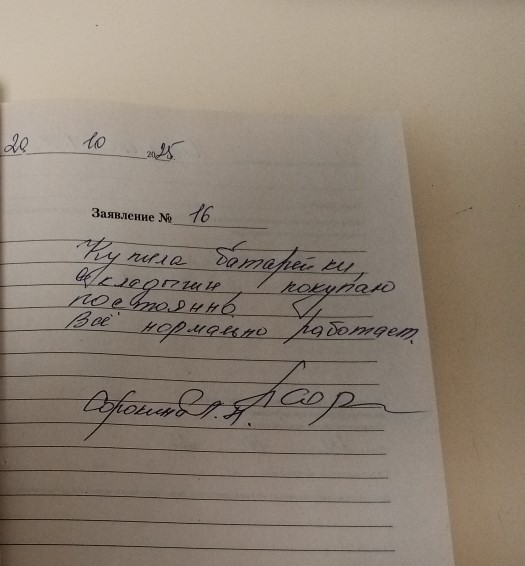 20 10 2025
Заявление № 16
Купила батарейки,
вкладыши покупаю
постоянно.
Всё нормально работает.
Сорокина Л. П.